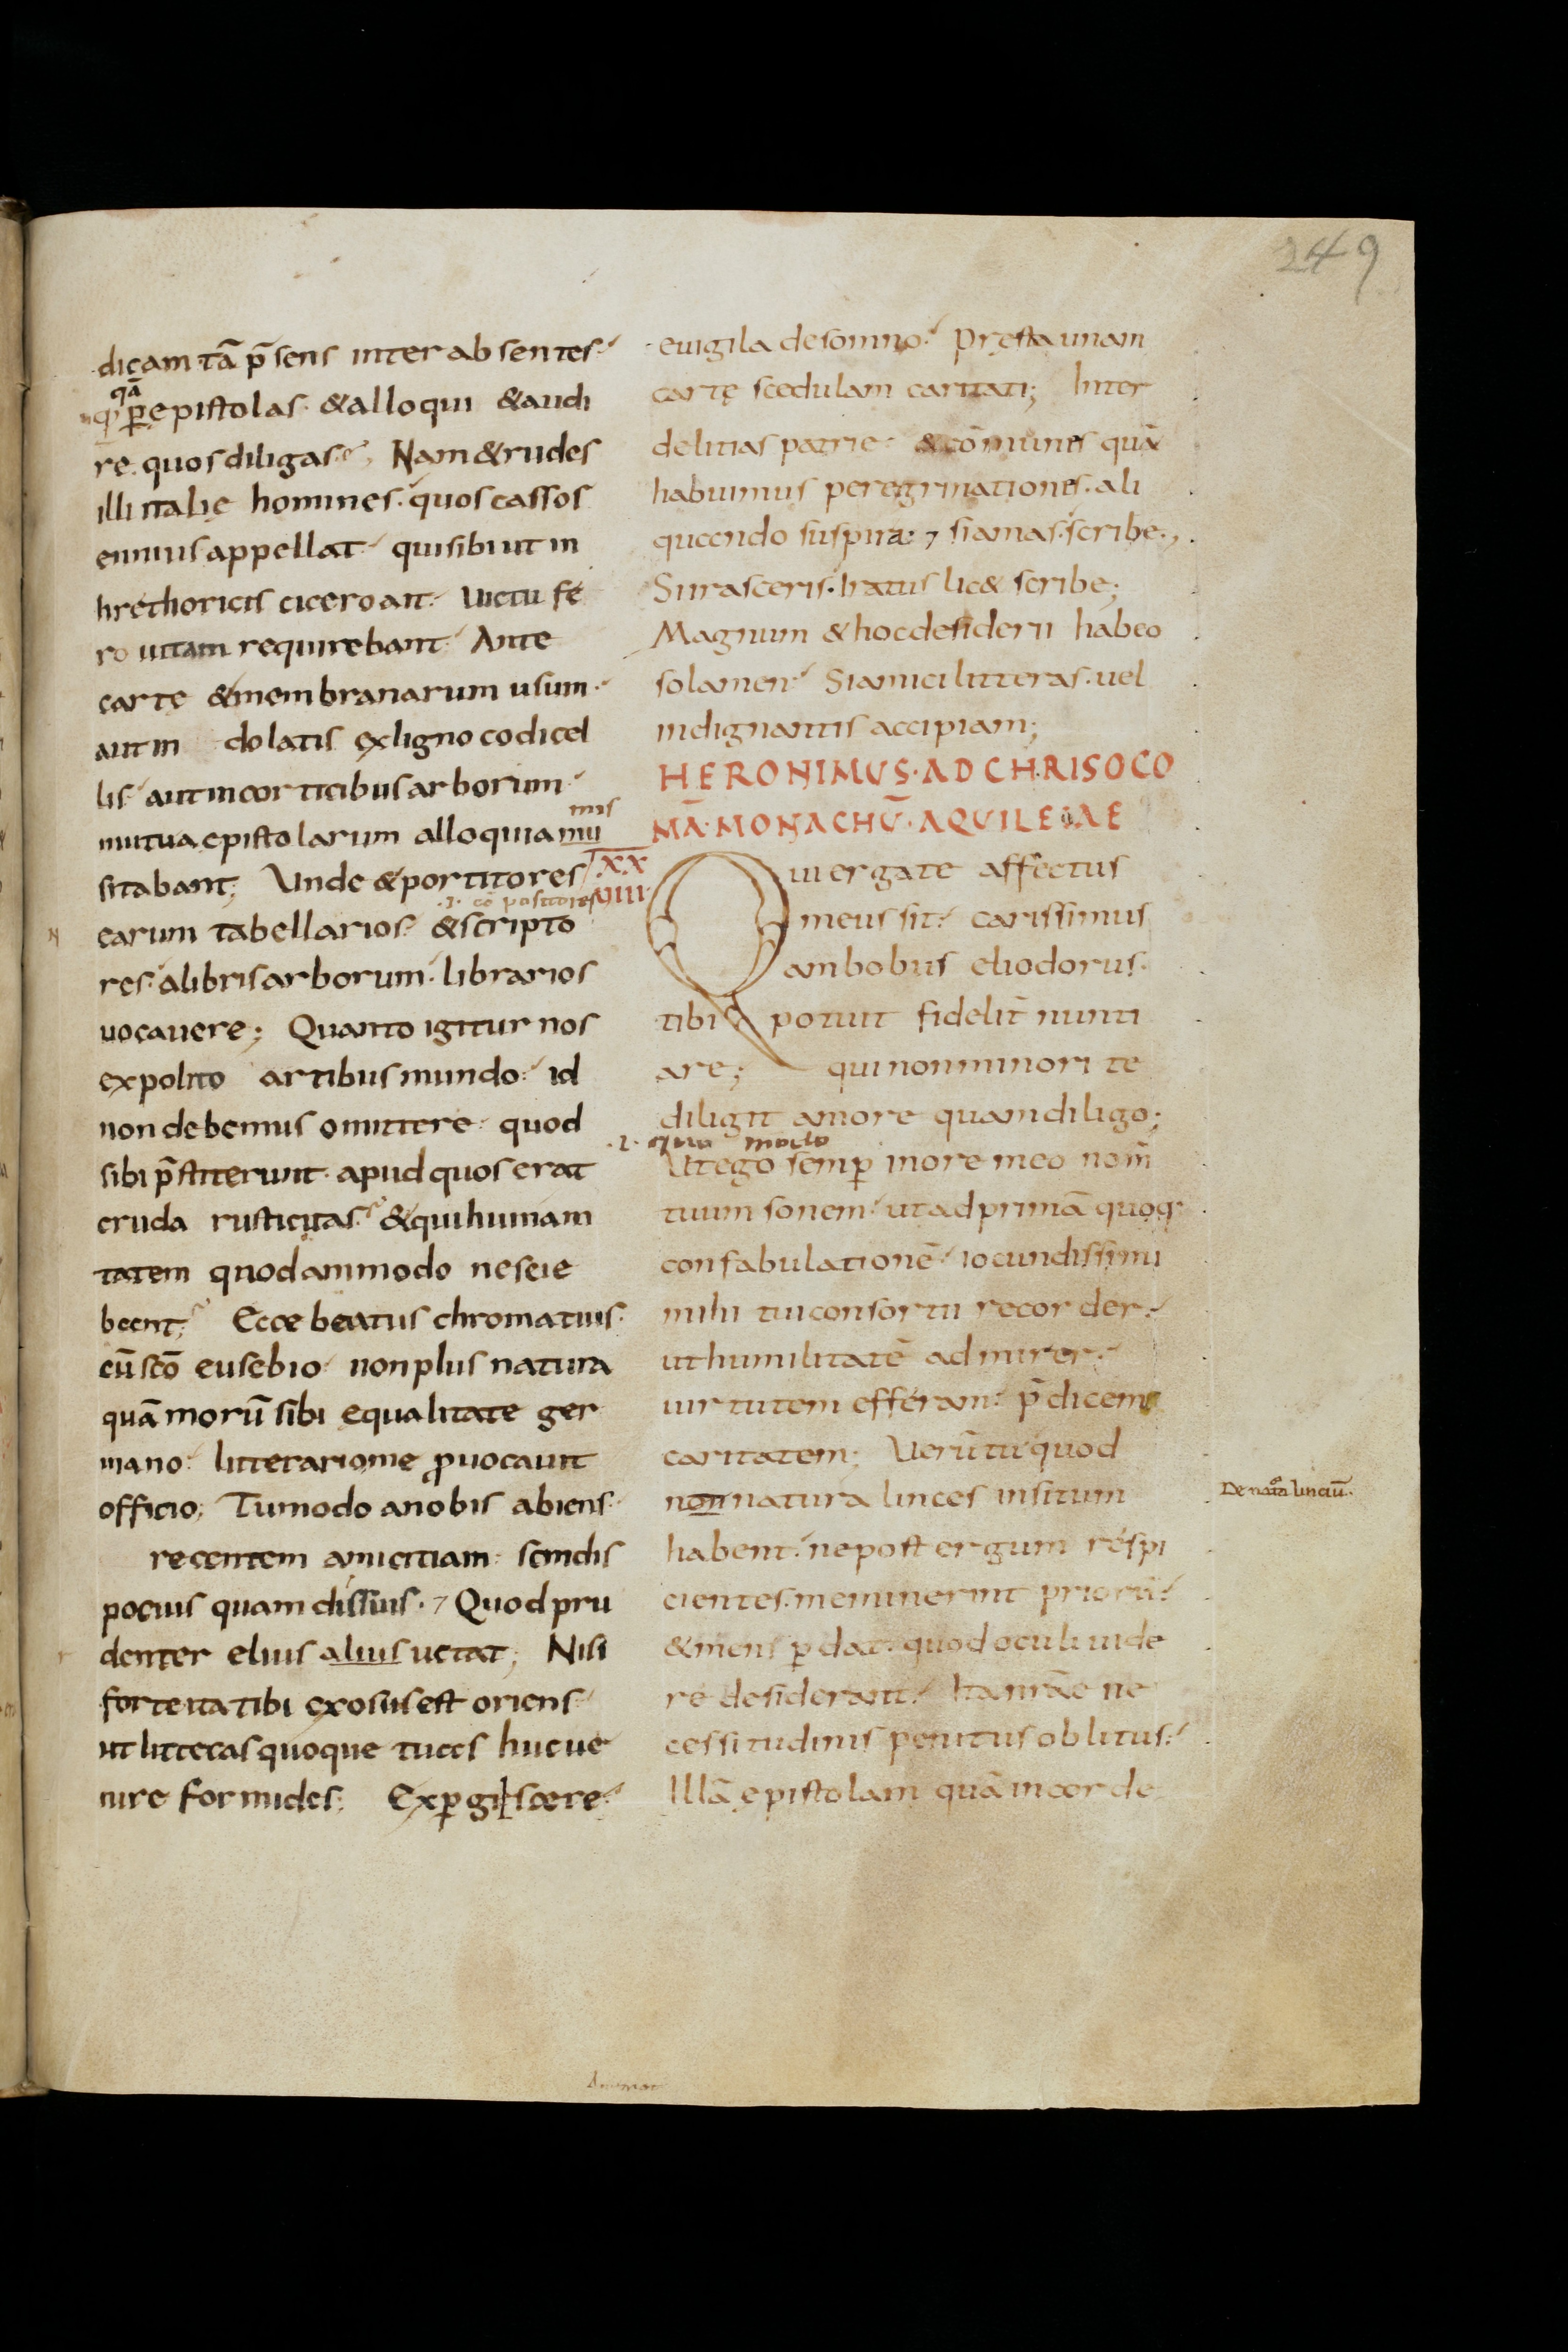 249
dicam tā p̄sens inter absentes
quā
ꝑ epistolas · & alloqui & audi
re quos diligas · Nam & rudes
illi italię homines · quos cassos
ennius appellat · qui sibi ut in
hrethoricis cicero ait · Uictu fe
ro uitam requirebant · Ante
cartę & membranarum usum ·
aut in dolatis ex ligno codicel
lis · aut in corticibus arborum
mis
mutua epistolarum alloquia mu
sitabant; Unde & portitores
·i· cōpositores
earum tabellarios · & scripto
res · a libris arborum · librarios
uocauere; Quanto igitur nos
expolito artibus mundo · id
non debemus omittere · quod
sibi p̄stiterunt · apud quos erat
cruda rusticitas · & qui humani
tatem quodammodo nescie
bant; Ecce beatus chromatius ·
cū scō eusebio · non plus natura
quā morū sibi equalitate ger
mano · litterario me ꝓuocauit
officio; Tu modo a nobis abiens ·
recentem amicitiam · scindis
pocius quam dissuis · Quod pru
denter elius alius uetat; Nisi
forte ita tibi exosus est oriens ·
ut litteras quoque tuas huc ue
nire formides; Exꝑgiscere ·
euigila de somno · Pręsta unam
cartę scedulam caritati; Inter
delitias patrie · & cōmunes quā
habuimus peregrinationes · ali
quando suspira · si amas · scribe ·
Si irasceris · Iratus lic& scribe;
Magnum & hoc desiderii habeo
solamen · Si amici litteras · uel
indignantis accipiam;
HERONIMUS · AD CHRISOCO
MĀ · MONACHŪ · AQUILEIAE
XX
VIIII
Qui erga te affectus
meus sit · carissimus
ambobus eliodorus ·
tibi potuit fidelit̄ nunti
are; qui non minori te
diligit amore quam diligo;
·i· modo
Ut ego semꝑ in ore meo nom̄
tuum sonem · ut ad primā quoq·
confabulationē · iocundissimi
mihi tui consortii recorder ·
ut humilitatē admirer ·
uirtutem efferam · p̄dicem
caritatem; Uerū tu quod
non natura linces insitum
De nat̄a linciū ·
habent · ne post ergum respi
cientes · meminerint priorū ·
& mens ꝑdat · quod oculi uide
re desiderant · Ita nrāe ne
cessitudinis penitus oblitus ·
Illā epistolam quā in corde